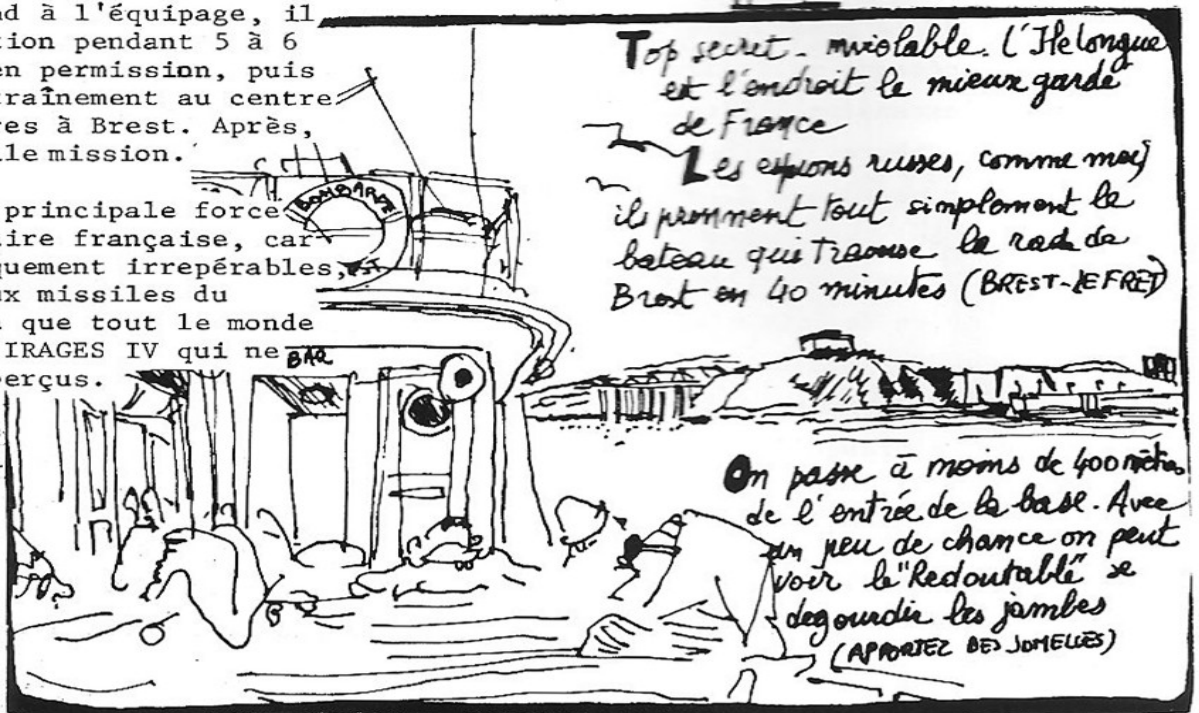 d à l'équipage, il
tion pendant 5 à 6
en permission, puis
traînement au centre
res à Brest. Après,
lle mission.
principale force
ire française, car
quement irrepérables,
ux missiles du
que tout le monde
IRAGES IV qui ne
perçus.
BOMBARDE
BAR
Top secret - inviolable. L'Ile longue
est l'endroit le mieux gardé
de France
Les espions russes, comme moi,
ils prennent tout simplement le
bateau qui traverse la rade de
Brest en 40 minutes (BREST-LE FRET)
On passe à moins de 400 mètres
de l'entrée de la base. Avec
un peu de chance on peut
voir le "Redoutable" se
degourdir les jambes
(APPORTEZ DES JUMELLES)